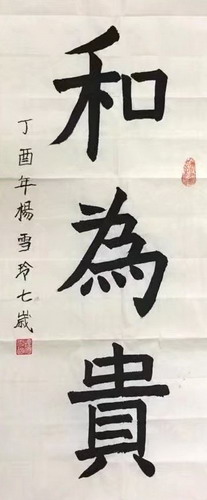 和為貴
丁酉年楊雪玲七歲